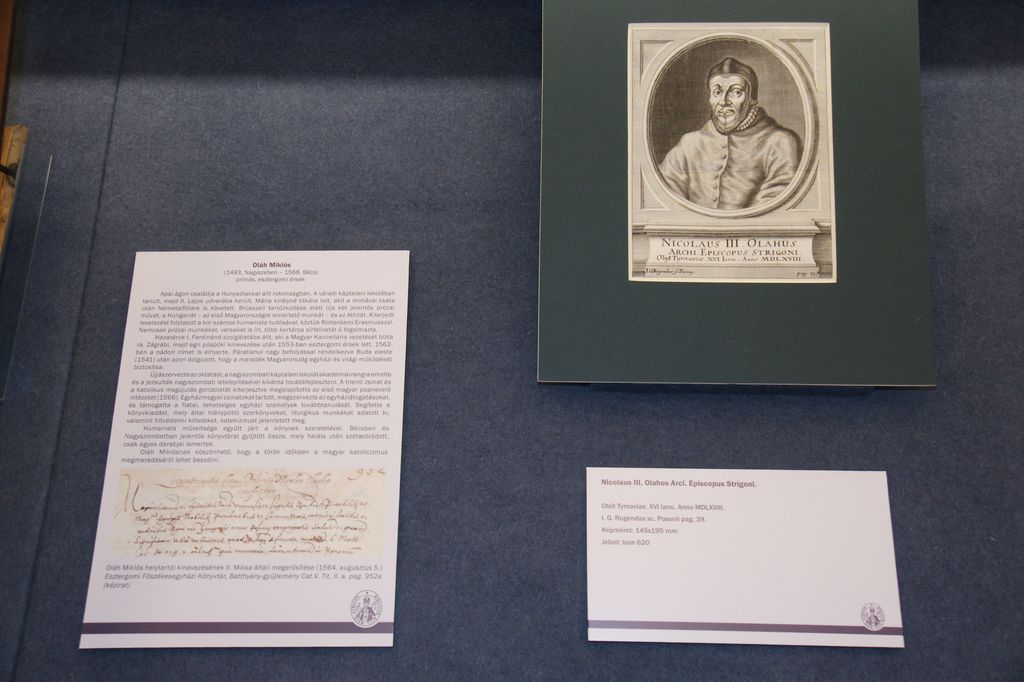 Oláh Miklós
(1493, Nagyszeben – 1568, Bécs)
prímás, esztergomi érsek
Apai ágon családja a Hunyadiakkal állt rokonságban. A váradi káptalani iskolában
tanult, majd II. Lajos udvarába került, Mária királyné titkára lett, akit a mohácsi csata
után Németalföldre is követett. Brüsszeli tartózkodása alatt írja két jelentős prózai
művét, a Hungariát – az első Magyarországot ismertető munkát – és az Athilát. Kiterjedt
levelezést folytatott a kor számos humanista tudósával, köztük Rotterdami Erasmusszal.
Nemcsak prózai munkákat, verseket is írt, több kortársa sírfeliratát ő fogalmazta.
Hazatérve I. Ferdinánd szolgálatába állt, aki a Magyar Kancellária vezetését bízta
rá. Zágrábi, majd egri püspöki kinevezése után 1553-ban esztergomi érsek lett. 1562-
ben a nádori címet is elnyerte. Páratlanul nagy befolyással rendelkezve Buda eleste
(1541) után azon dolgozott, hogy a maradék Magyarország egyházi és világi működését
biztosítsa.
Újjászervezte az oktatást, a nagyszombati káptalani iskolát akadémiai rangra emelte
és a jezsuiták nagyszombati letelepítésével kívánta továbbfejleszteni. A trienti zsinat és
a katolikus megújulás gondolatát kiterjesztve megalapította az első magyar papnevelő
intézetet (1566). Egyházmegyei zsinatokat tartott, megszervezte az egyházlátogatásokat,
és támogatta a fiatal, tehetséges egyházi személyek továbbtanulását. Segítette a
könyvkiadást, mely által hiánypótló szerkönyveket, liturgikus munkákat adatott ki,
valamint hitvédelmi köteteket, katekizmust jelentetett meg.
Humanista műveltsége együtt járt a könyvek szeretetével. Bécsben és
Nagyszombatban jelentős könyvtárat gyűjtött össze, mely halála után szétszóródott,
csak egyes darabjai ismertek.
Oláh Miklósnak köszönhető, hogy a török időkben a magyar katolicizmus
megmaradásáról lehet beszélni.
932
Oláh Miklós helytartói kinevezésének II. Miksa általi megerősítése (1564. augusztus 5.)
Esztergomi Főszékesegyházi Könyvtár, Batthyány-gyűjtemény Cat.V. Tit. II. a. pag. 952a
(kézirat)
NICOLAUS III. OLAHUS
ARCHI EPISCOPUS STRIGONI.
Obijt Tyrnaviæ XVI Ianu. Anno MDLXVIII.
Nicolaus III. Olahos Arci. Episcopus Strigoni.
Obiit Tyrnaviae. XVI Ianu. Anno MDLXVIII.
I. G. Rugendas sc. Posonii pag. 39.
Képméret: 145x195 mm
Jelzet: Icon 620